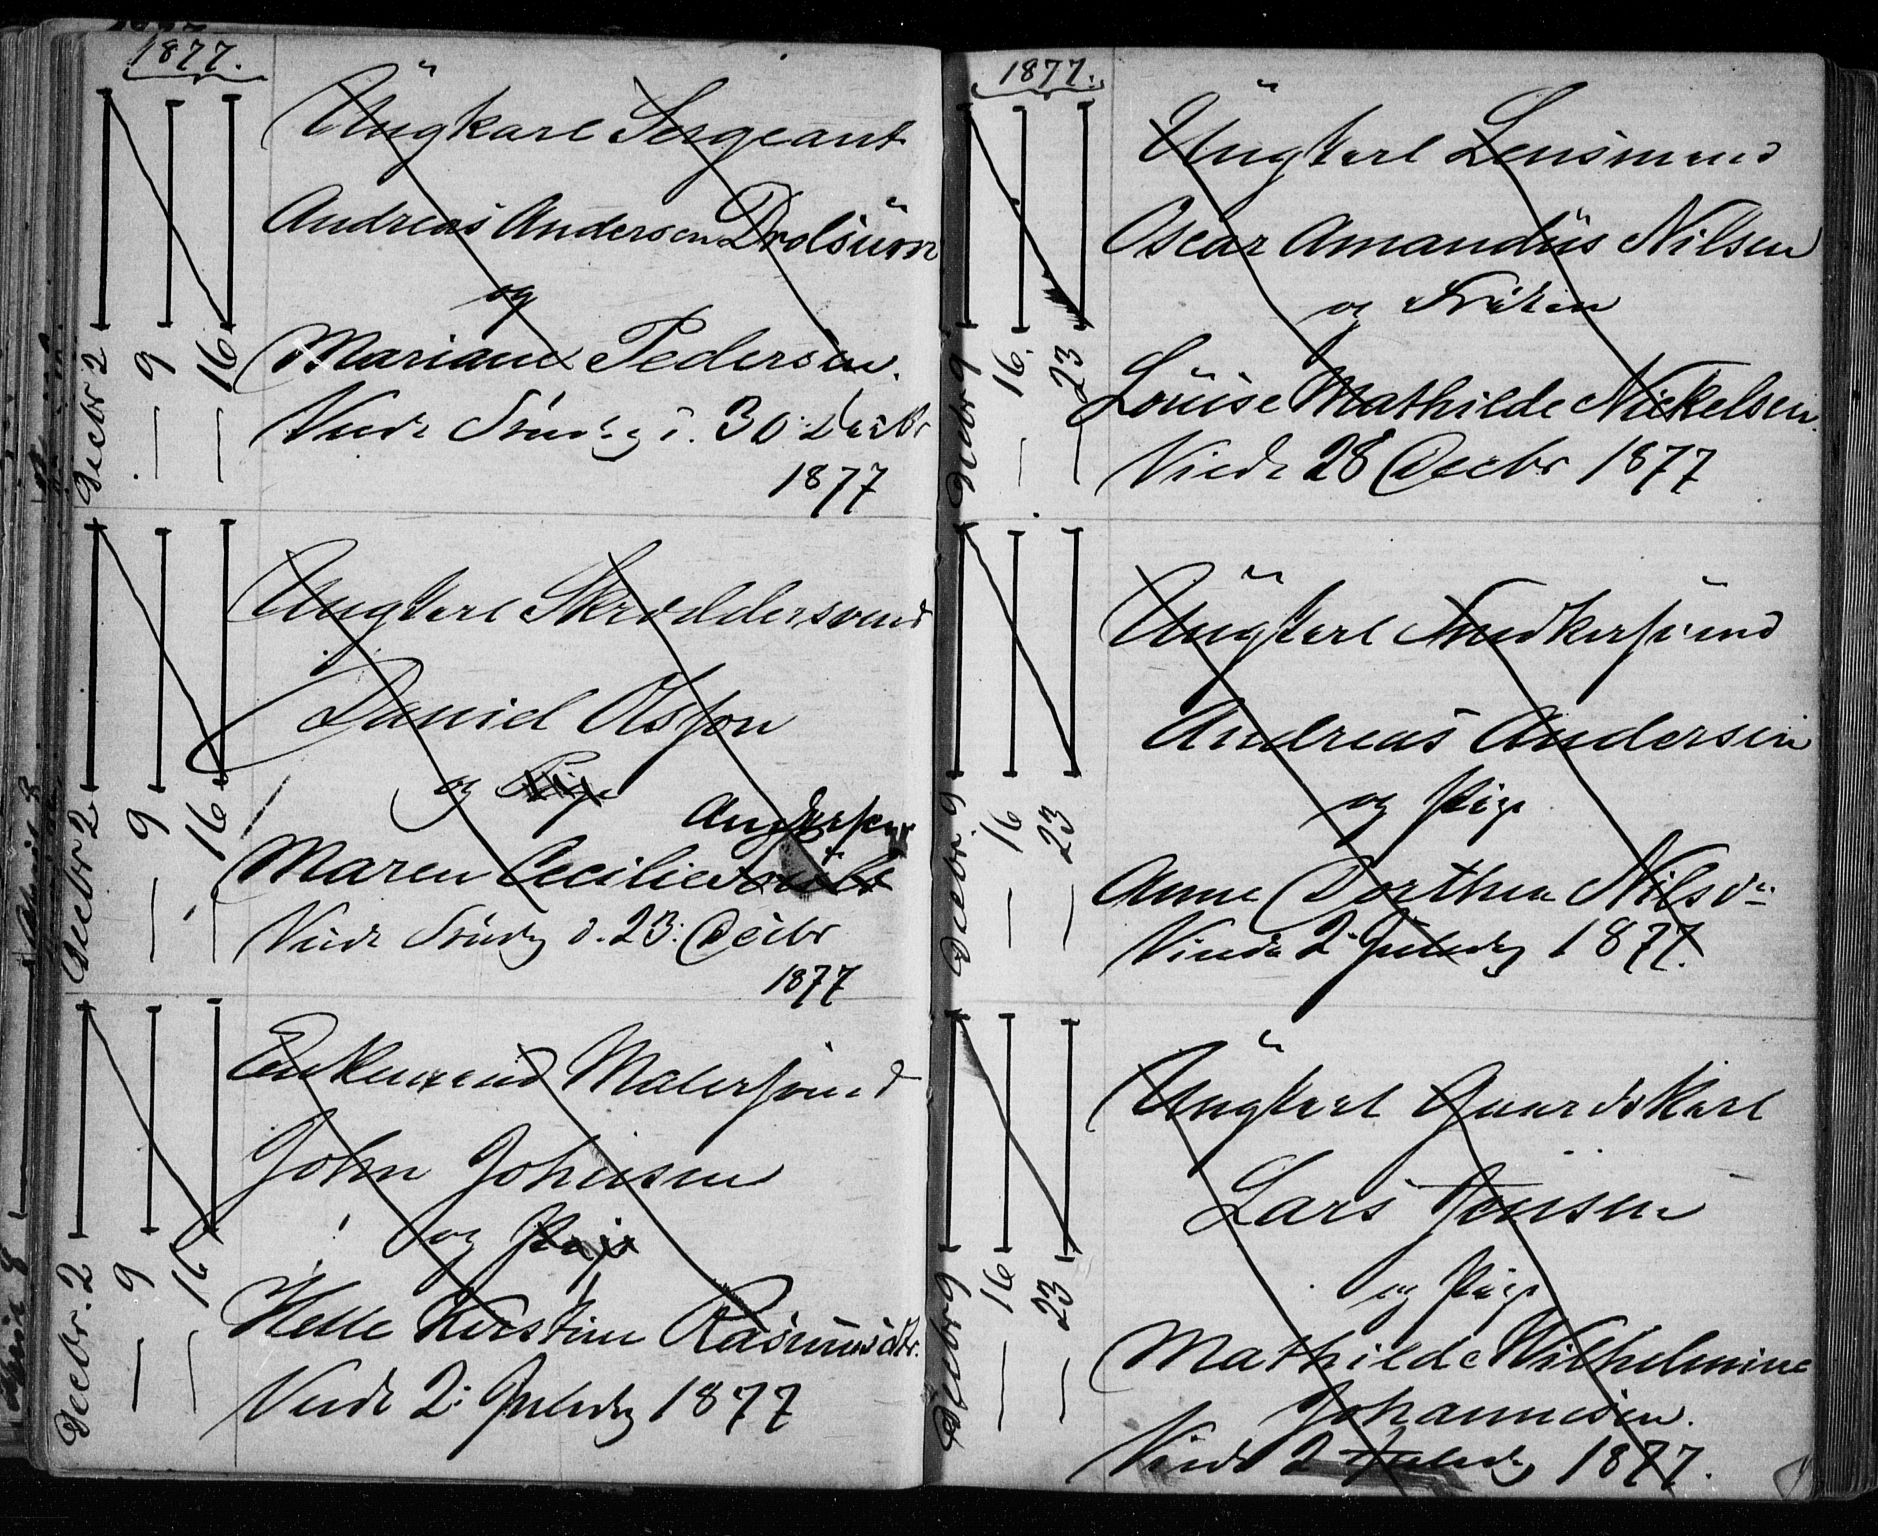 1877.
Ungkarl Sergeant
Andreas Andersen Drolsum
og
Mariane Pedersen.
Viede Søndag d. 30 Decbr
1877
Decbr 2 — 9 — 16 —
Ungkarl Skræddersvend
Daniel Olsson
og Pige
Andersen
Maren Cecilie
Viede Søndag d. 23. Decbr
1877
Decbr 2 — 9 — 16 —
Enkemand Malersvend
John Johnsen
og Pige
Helle Kirstine Rasmusdtr.
Viede 2. Juledag 1877
Decbr. 2 — 9 — 16 —
1877.
Ungkarl Lensmand
Oscar Amandus Nilsen
og Frøken
Louise Mathilde Nickelsen.
Viede 28 Decbr 1877
Decbr 9 — 16. — 23 —
Ungkarl Snedkersvend
Andreas Andersen
og Pige
Anne Dorthea Nilsdr
Viede 2. Juledag 1877.
Decbr. 9 — 16 — 23 —
Ungkarl Gaardskarl
Lars Jensen
og Pige
Mathilde Wilhelmine
Johannesen.
Viede 2 Juledag 1877.
Decbr 9 — 16 — 23 —